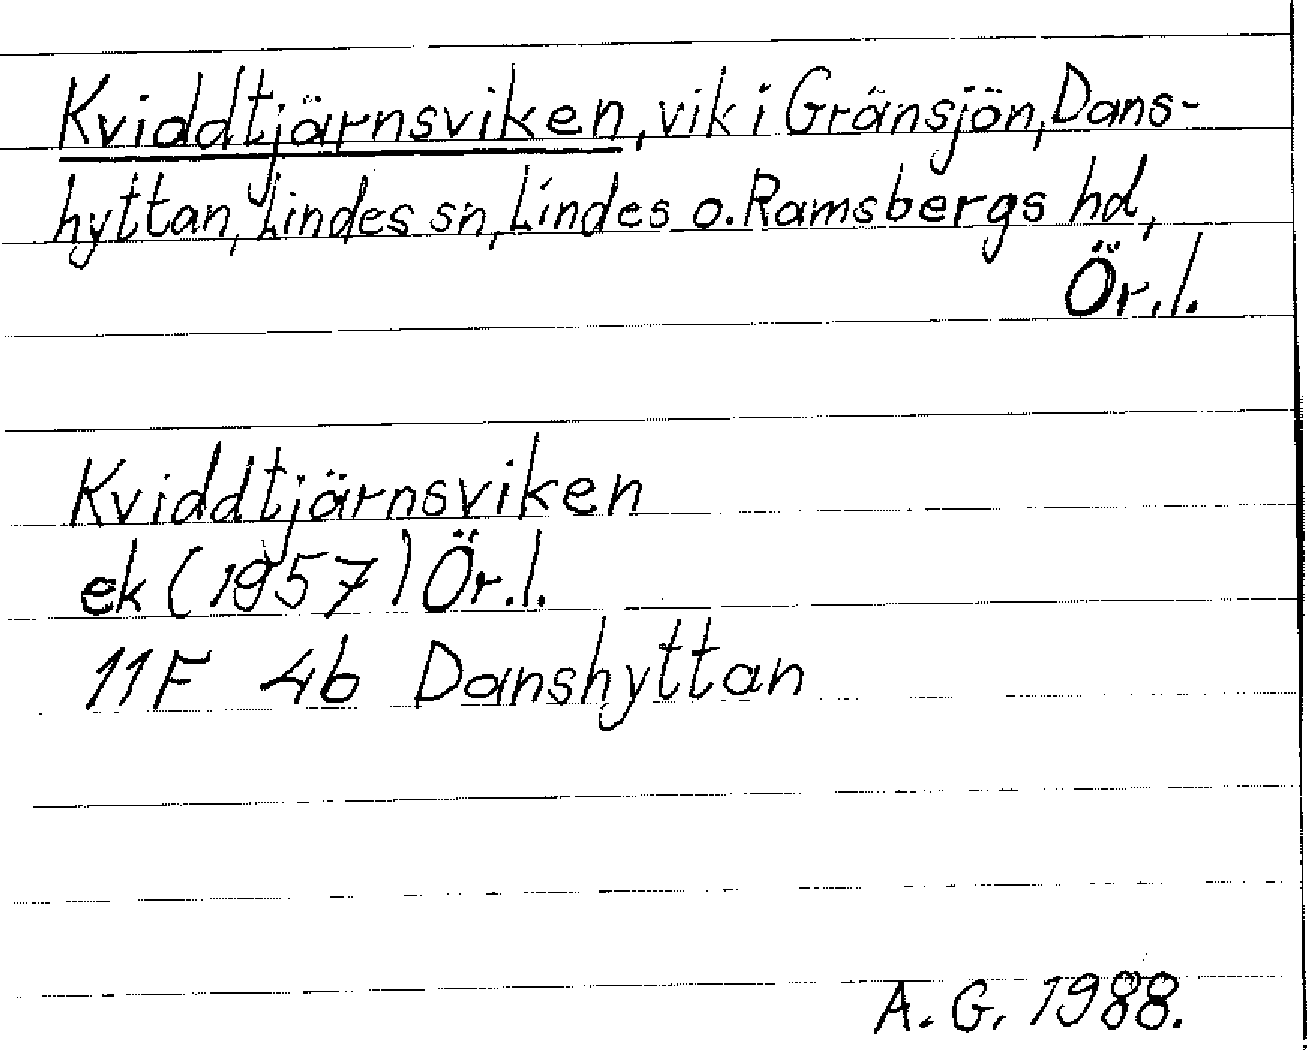 Kviddtjärnsviken, vik i Gränsjön, Dans-
hyttan, Lindes sn, Lindes o. Ramsbergs hd,
Ör. l.
Kviddtjärnsviken
ek (1957) Ör. l.
11F 4b Danshyttan
A. G. 1988.